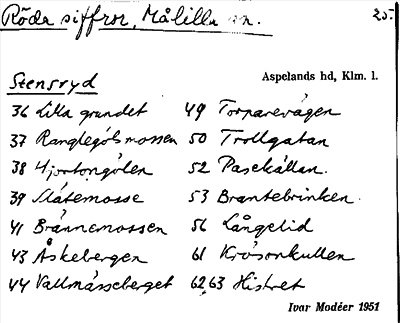 Röda siffror, Målilla sn. 25.
Stensryd
Aspelands hd, Klm. l.
36 Lilla grundet
37 Ranglegölsmossen
38 Hjortongölen
39 Slåtemosse
41 Brännemossen
43 Åskebergen
44 Vallmåsseberget
49 Torparevägen
50 Trollgatan
52 Pasekällan.
53 Brantebrinken.
56 Långelid
61 Krösonkullen
62,63 Histret
Ivar Modéer 1951